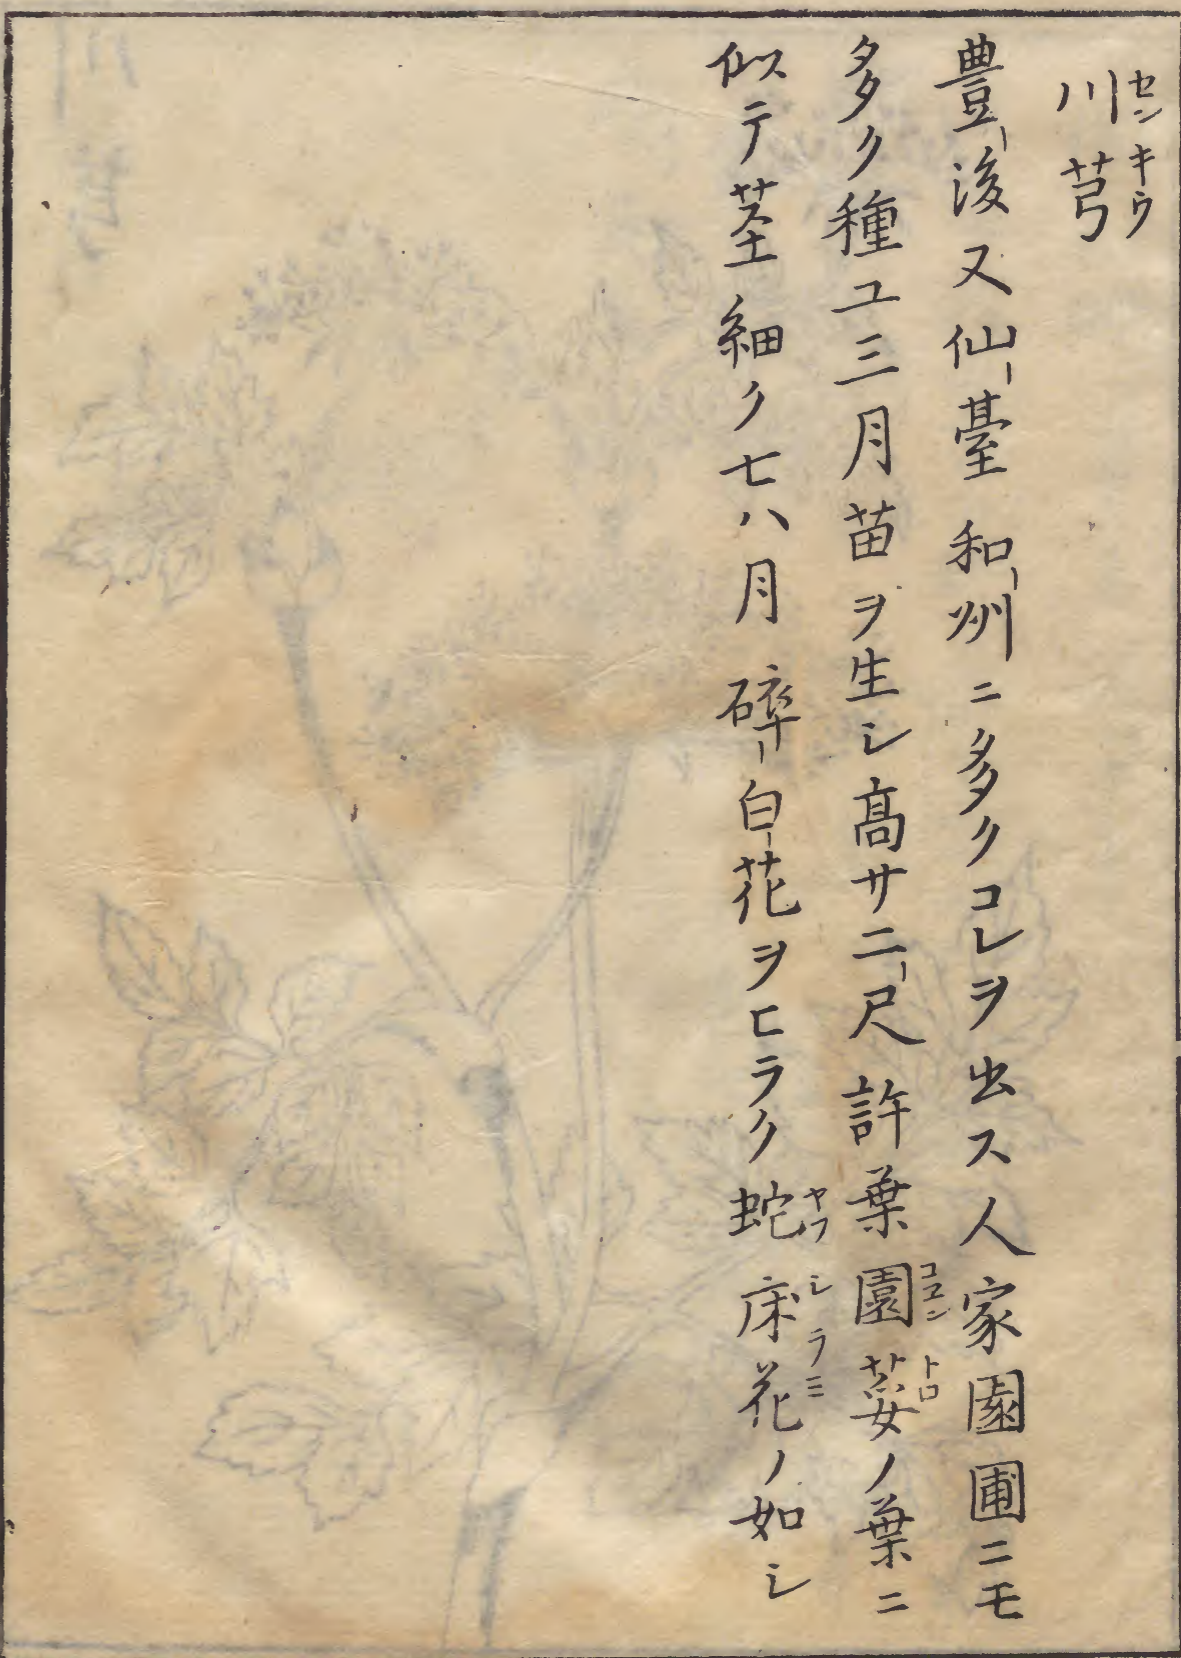 川芎
センキウ
豊後又仙臺和州ニ多クコレヲ出ス人家園圃ニモ
多ク種ユ三月苗ヲ生シ高サ二尺許葉園荽ノ葉ニ
コエントロ
似テ茎細ク七八月碎白花ヲヒラク蛇床花ノ如シ
ヤフシラミ